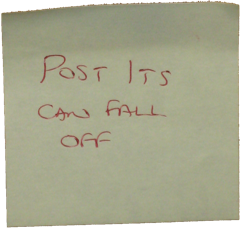 POST ITS
CAN FALL
OFF